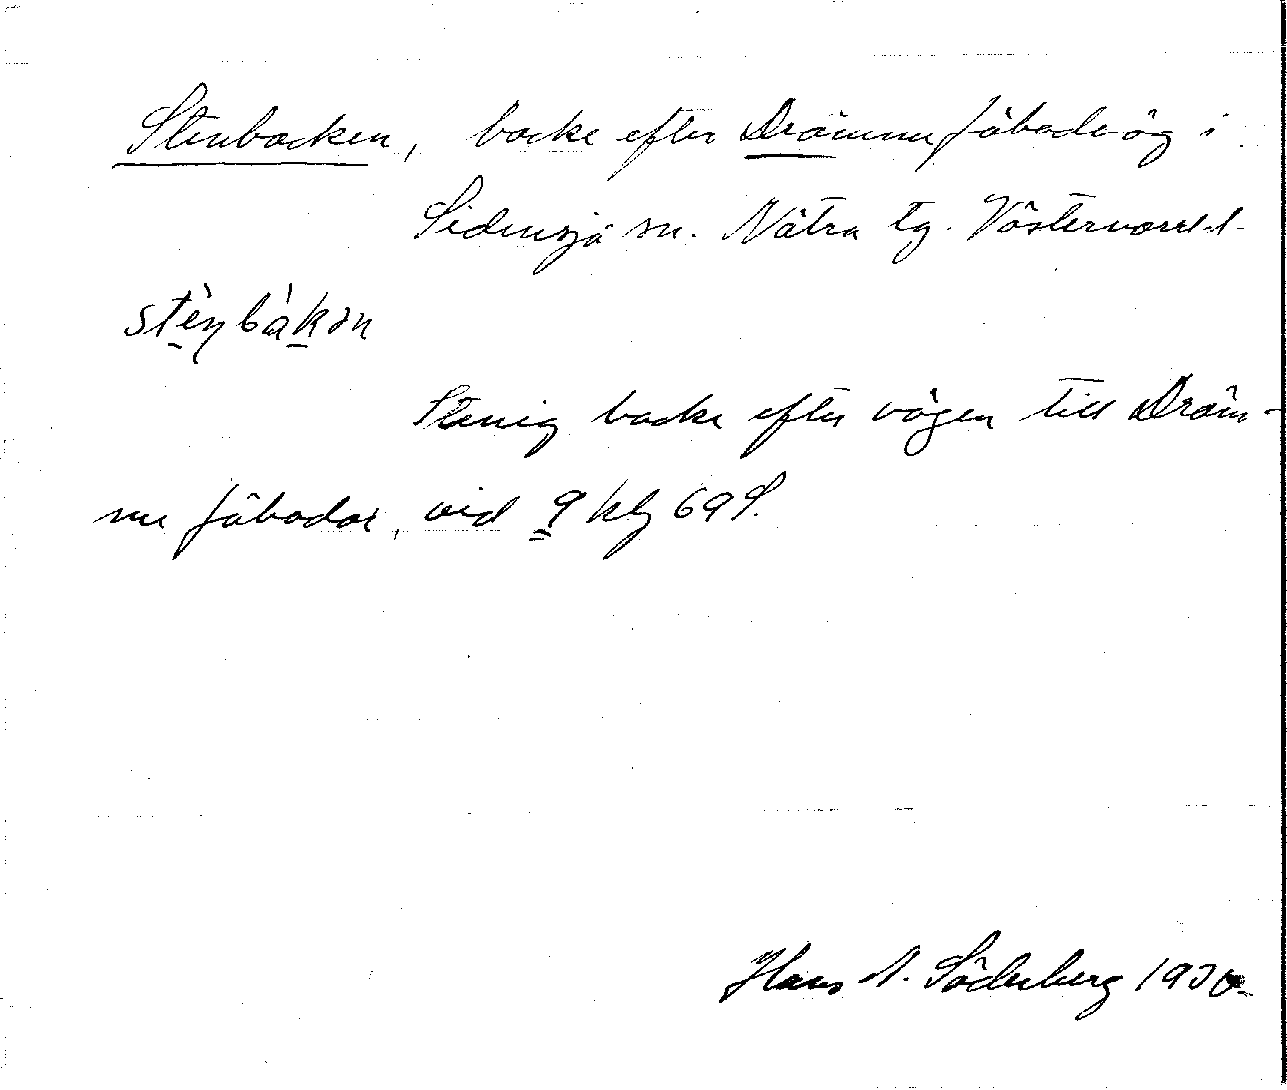 Stenbacken, backe efter Drömme fäbodväg i
Sidensjö sn. Nätra tg. Västernorrl.
stèn̥bàkən
Stenig backe efter vägen till Dröm-
me fäbodar, vid 9 klg 69 S.
Hans A. Söderberg 1930